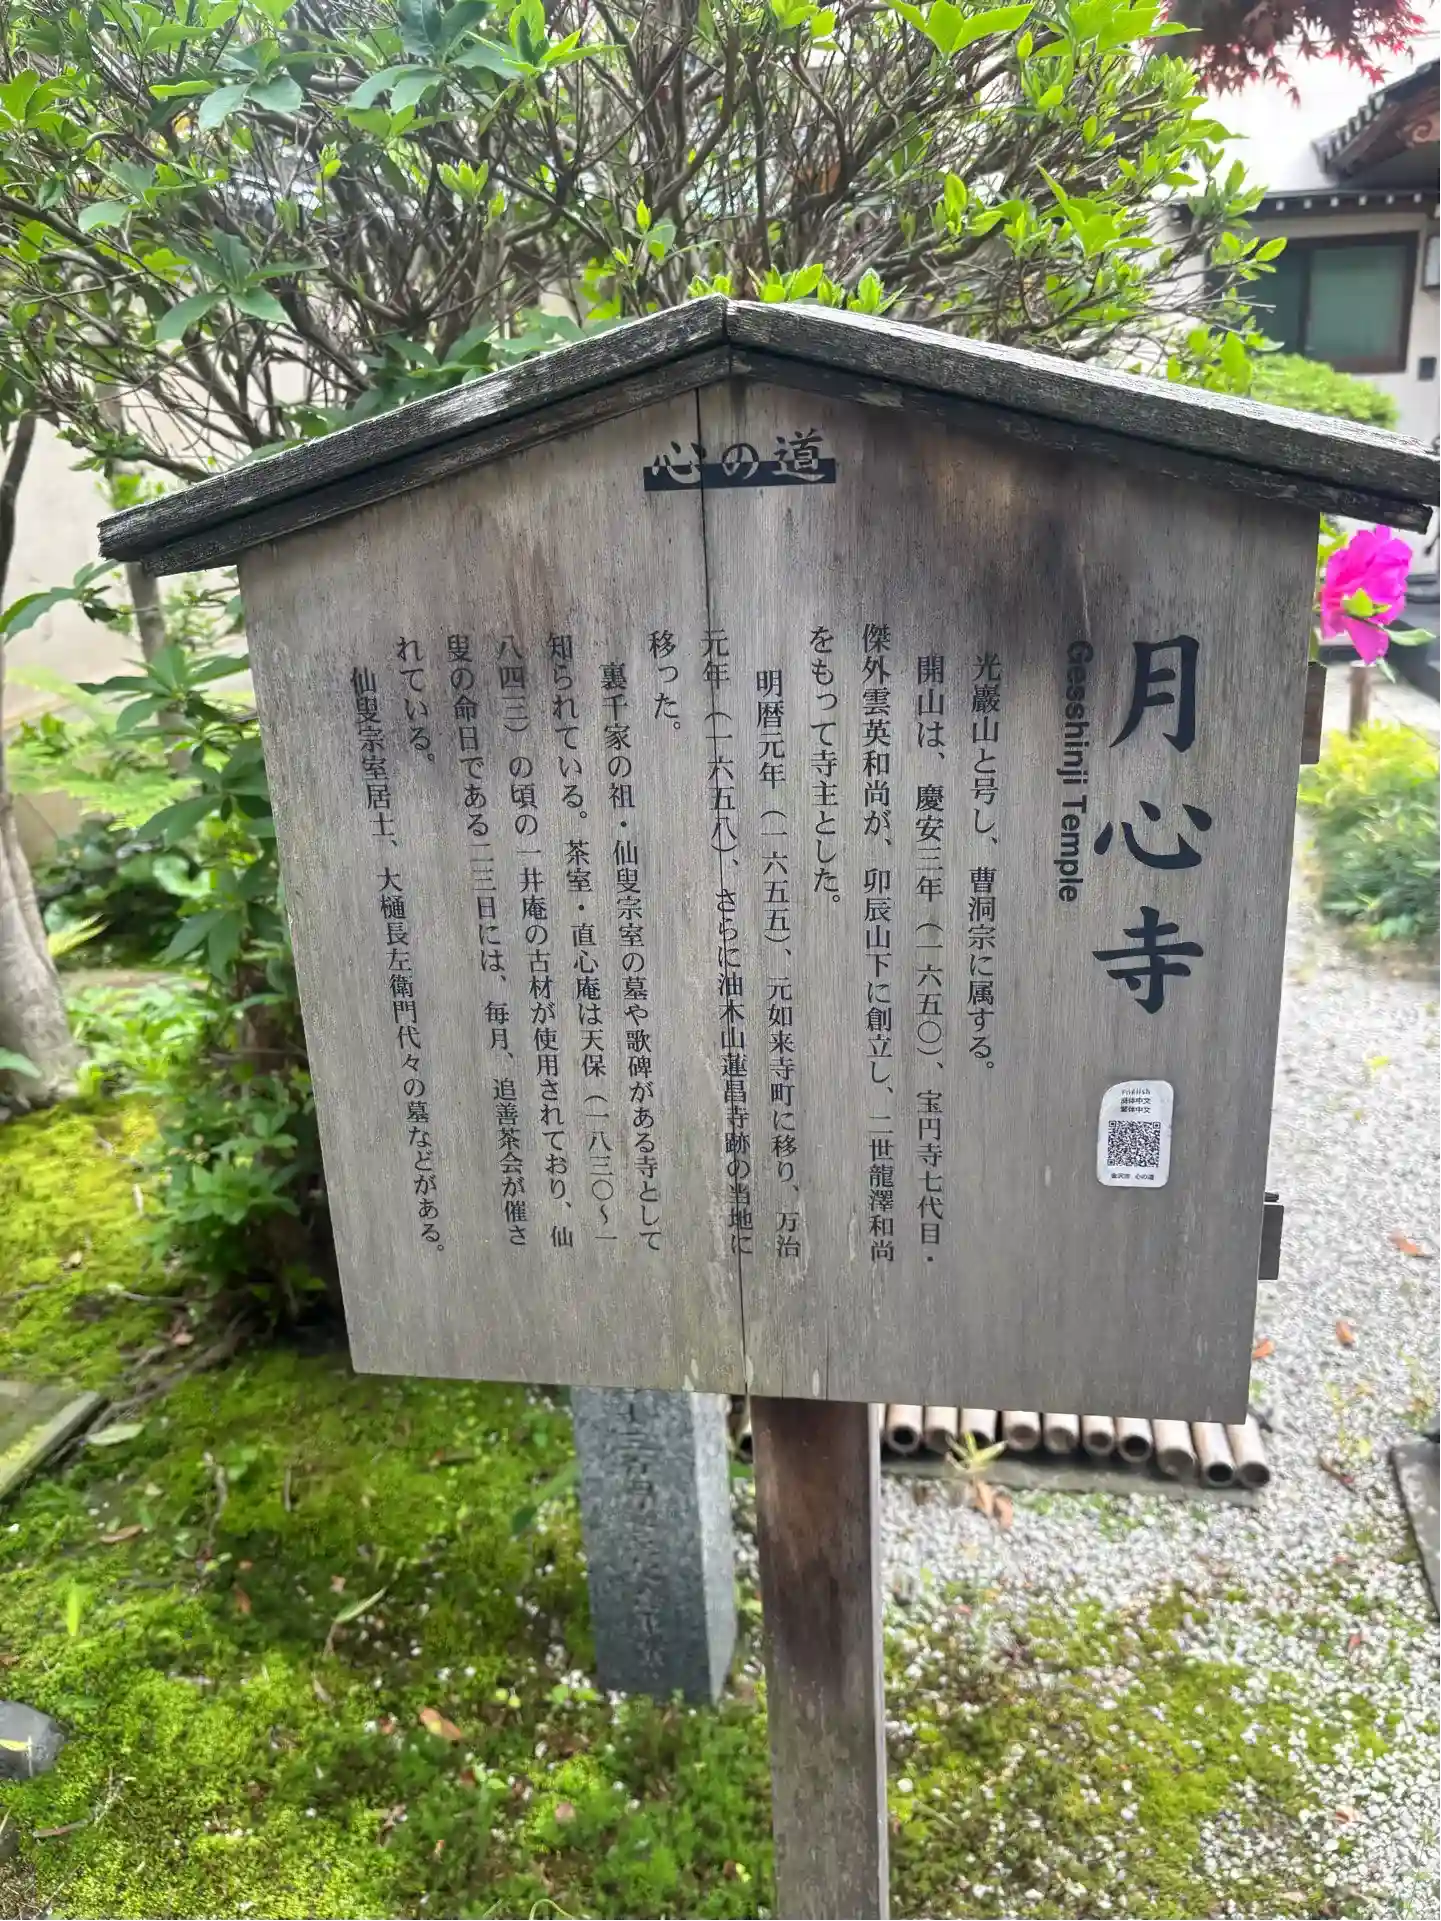 心の道
月心寺
Gesshinji Temple
光巖山と号し、曹洞宗に属する。
開山は、慶安三年（一六五〇）、宝円寺七代目・
傑外雲英和尚が、卯辰山下に創立し、二世龍澤和尚
をもって寺主とした。
明暦元年（一六五五）、元如来寺町に移り、万治
元年（一六五八）、さらに油木山蓮昌寺跡の当地に
移った。
裏千家の祖・仙叟宗室の墓や歌碑がある寺として
知られている。茶室・直心庵は天保（一八三〇〜一
八四三）の頃の一井庵の古材が使用されており、仙
叟の命日である二三日には、毎月、追善茶会が催さ
れている。
仙叟宗室居士、大樋長左衛門代々の墓などがある。
English
简体中文
繁体中文
金沢市 心の道